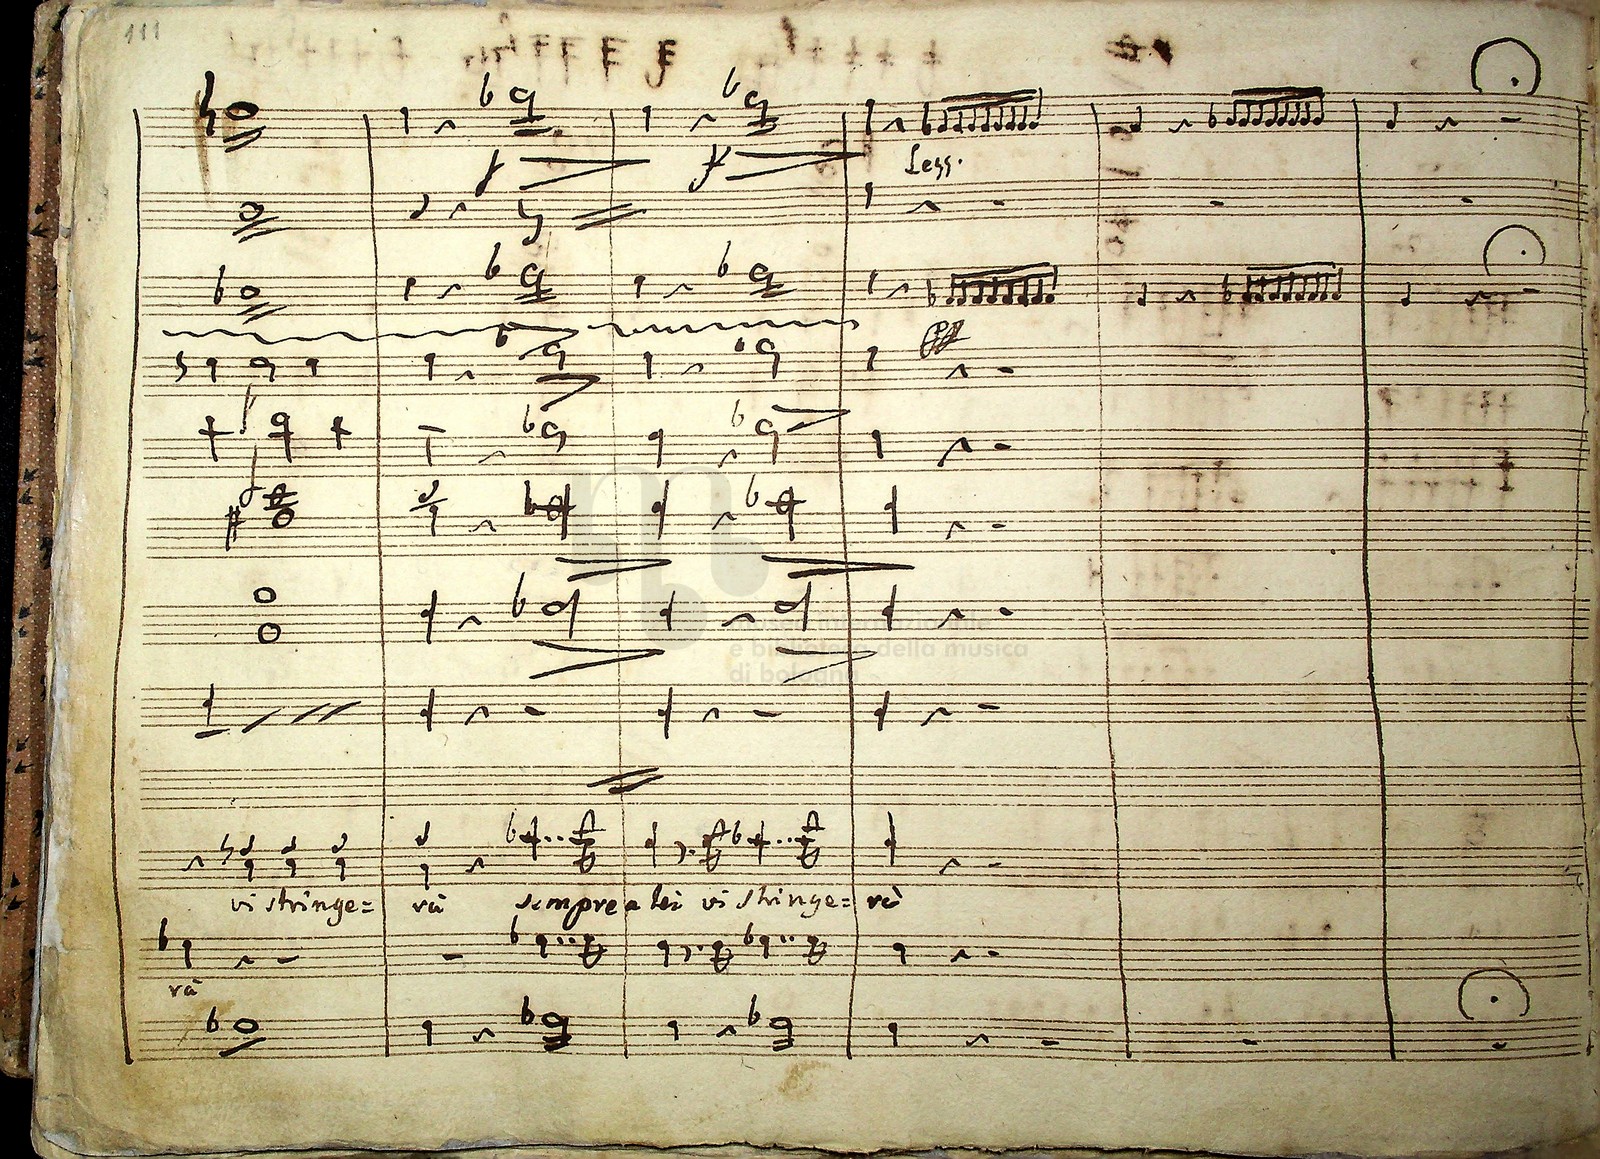 111
f f
Legg.
ff
museo internazionale
e biblioteca della musica
di bologna
vi stringe= rà sempre a lei vi stringe= rà
rà